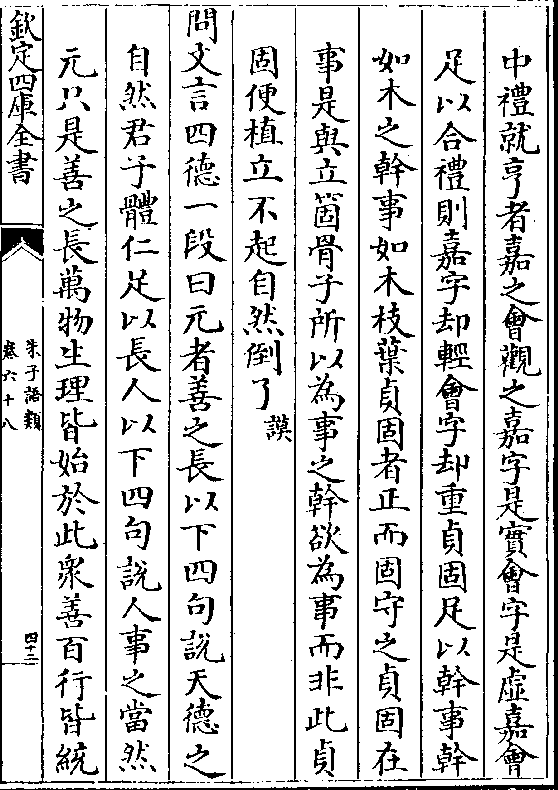 中禮就亨者嘉之會觀之嘉字是實會字是虛嘉會
足以合禮則嘉字却輕會字却重貞固足以幹事幹
如木之幹事如木枝葉貞固者正而固守之貞固在
事是與立箇骨子所以為事之幹欲為事而非此貞
固便植立不起自然倒了謨
問文言四德一段曰元者善之長以下四句說天德之
自然君子體仁足以長人以下四句說人事之當然
元只是善之長萬物生理皆始於此衆善百行皆統
欽定四庫全書
朱子語類
卷六十八
四十二